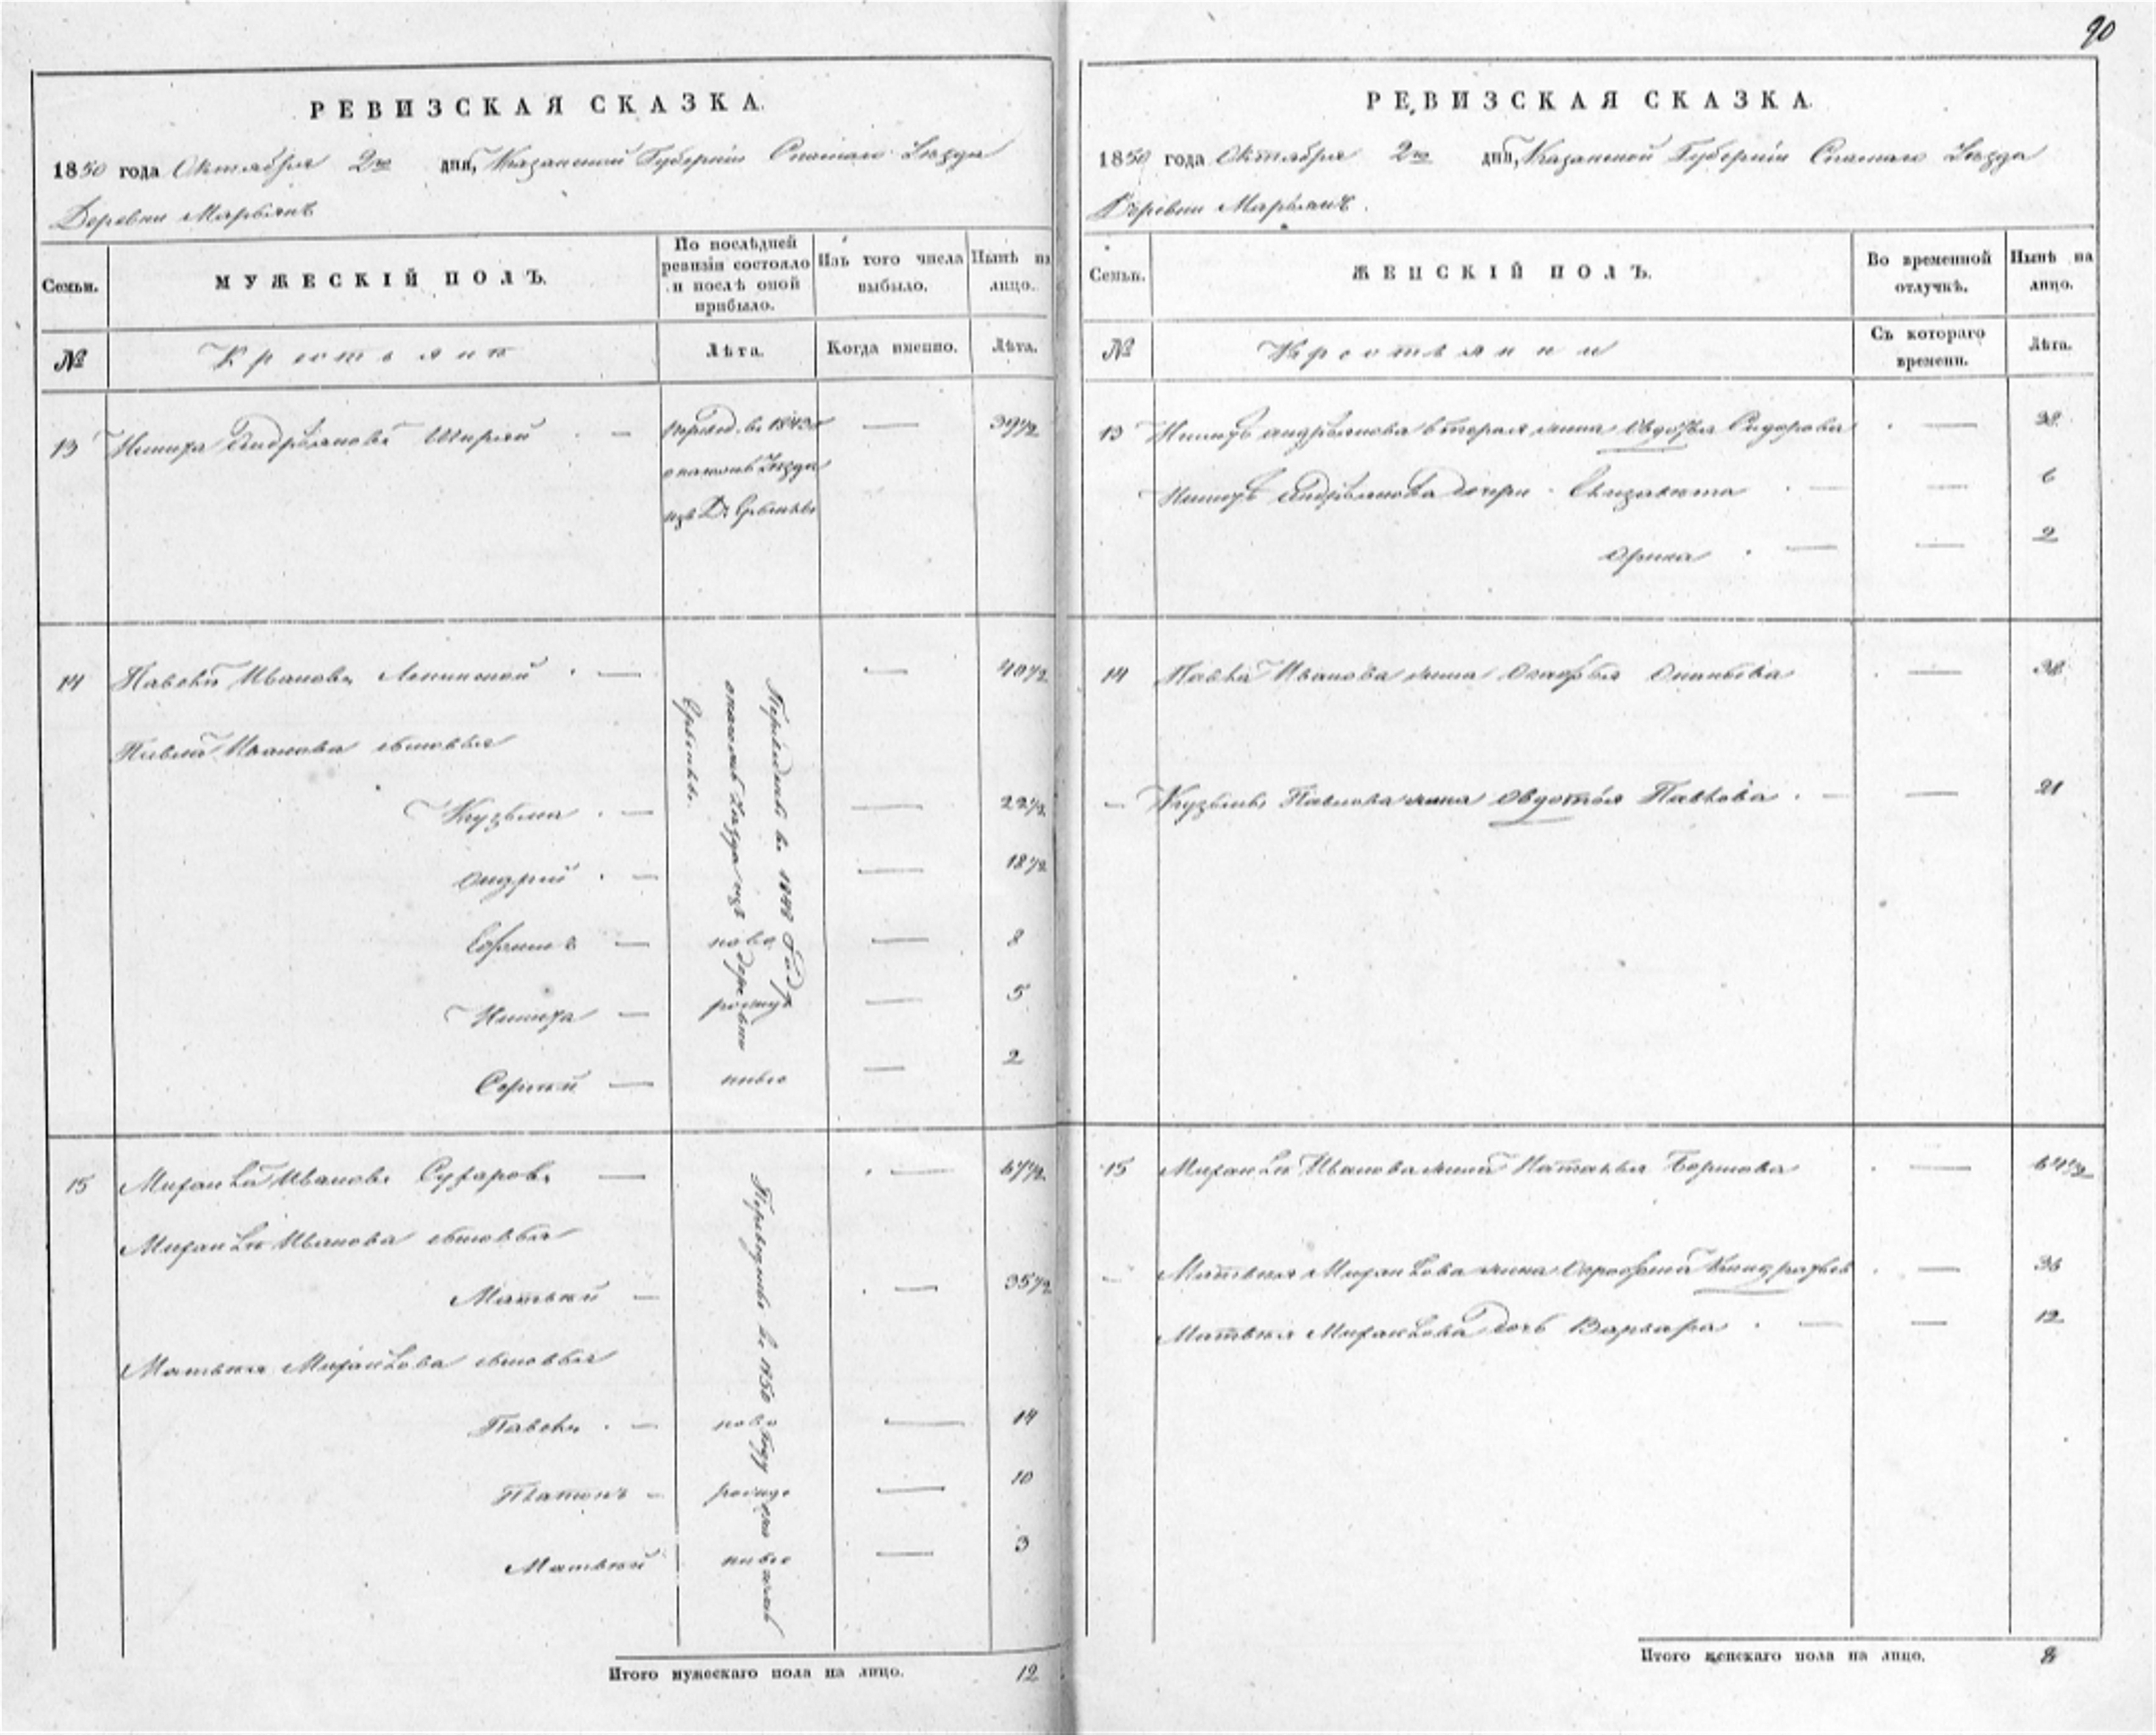 90
РЕВИЗСКАЯ СКАЗКА.
1850 года Октября 2го дня, Казанской Губернии Спаскаго Уезда
Деревни Марьянъ
Семьи. МУЖЕСКІЙ ПОЛЪ. По послѣдней ревизіи состояло и послѣ оной прибыло. Изъ того числа выбыло. Нынѣ на лицо.
№ Крестьянъ Лѣта. Когда именно. Лѣта.
13 Никита Андрѣяновъ — — 39 1/2
в 1843
Уезда
изъ Д.
14 Павелъ Ивановъ — — 40 1/2
Переведенъ в 1848 году
Уезда изъ деревни
Павла Иванова сыновья
Кузьма — — 22 1/2
Андрей — — 18 1/2
— ново — 8
Никита — рожде — 5
Сергей — ннаго — 2
15 Михайла Ивановъ — — 67 1/2
Переведенъ в 1850 году
Михайлы Иванова сыновья
Матвей — — 35 1/2
Матвея Михайлова сыновья
Павелъ — ново — 14
Платонъ — рожде — 10
Матвей нные — 3
Итого мужескаго пола на лицо. 12
РЕВИЗСКАЯ СКАЗКА.
1850 года Октября 2го дня, Казанской Губернии Спаскаго Уезда
Деревни Марьянъ.
Семьи. ЖЕНСКІЙ ПОЛЪ. Во временной отлучкѣ. Нынѣ на лицо.
№ Крестьянки Съ котораго времени. Лѣта.
13 Никиты Андрѣянова вторая жена Овдотья Сидорова — 38
Никиты Андрѣянова дочери Елизавета — — 6
Орина — — 2
14 Павла Иванова жена — 38
— Кузьмы Павлова жена Овдотья Павлова — — 21
15 Михайлы Иванова жена Наталья — 64 1/2
— Матвея Михайлова жена — 36
Матвея Михайлова дочь Варвара — — 12
Итого женскаго пола на лицо. 8